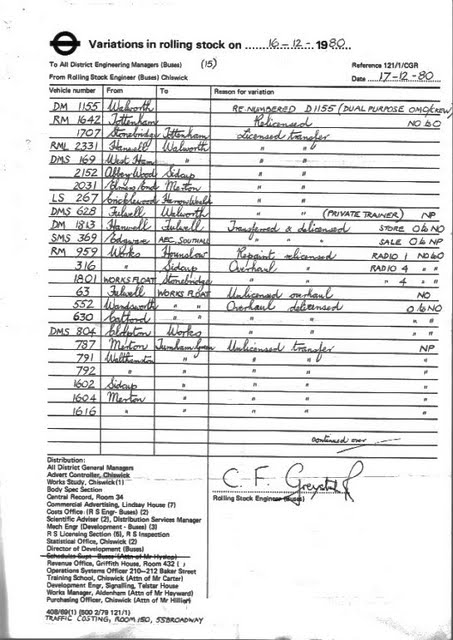 Variations in rolling stock on 16-12-1980
To All District Engineering Managers (Buses) (15) Reference 121/1/CGR
From Rolling Stock Engineer (Buses) Chiswick Date 17-12-80
Vehicle number From To Reason for variation
DM 1155 Walworth RE-NUMBERED D1155 (DUAL PURPOSE OMO/CREW)
RM 1642 Tottenham Relicensed NO to O
1707 Stonebridge Tottenham Licensed transfer
RML 2331 Hanwell Walworth " "
DMS 169 West Ham " " "
2152 Abbey Wood Sidcup " "
2031 Elmers End Merton " "
LS 267 Cricklewood Harrow Weald " "
DMS 628 Fulwell Walworth " " (PRIVATE TRAINER) NP
DM 1813 Hanwell Fulwell Transferred & delicensed STORE O to NO
SMS 369 Edgware AEC, SOUTHALL " " SALE O to NP
RM 959 Works Hounslow Repaint relicensed RADIO 1 NO to O
316 " Sidcup Overhaul RADIO 4 " "
1801 WORKS FLOAT Stonebridge " " " 4 " "
63 Fulwell WORKS FLOAT Unlicensed overhaul NO
552 Wandsworth " " Overhaul delicensed O to NO
630 Catford " " " " " "
DMS 804 Edmonton Works " "
787 Merton Turnham Green Unlicensed transfer NP
791 Walthamstow " " " " "
792 " " " " " "
1602 Sidcup " " " " "
1604 Merton " " " " "
1616 " " " " " "
continued over
Distribution:
All District General Managers
Advert Controller, Chiswick
Works Study, Chiswick (1)
Body Spec Section
Central Record, Room 34
Commercial Advertising, Lindsay House (7)
Costs Office: (R S Engr- Buses) (2)
Scientific Adviser (2), Distribution Services Manager
Mech Engr (Development - Buses) (3)
R S Licensing Section (5), R S Inspection
Statistical Office, Chiswick (2)
Director of Development (Buses)
Schedules Supt - Buses (Attn of Mr Hyslop)
Revenue Office, Griffith House, Room 432
Operations Systems Officer 210-212 Baker Street
Training School, Chiswick (Attn of Mr Carter)
Development Engr, Signalling, Telstar House
Works Manager, Aldenham (Attn of Mr Hayward)
Purchasing Officer, Chiswick (Attn of Mr Hillier)
C. F.
Rolling Stock Engineer (Buses)
408/69(1) (800 2/79 121/1)
TRAFFIC COSTING, ROOM 150, 55 BROADWAY